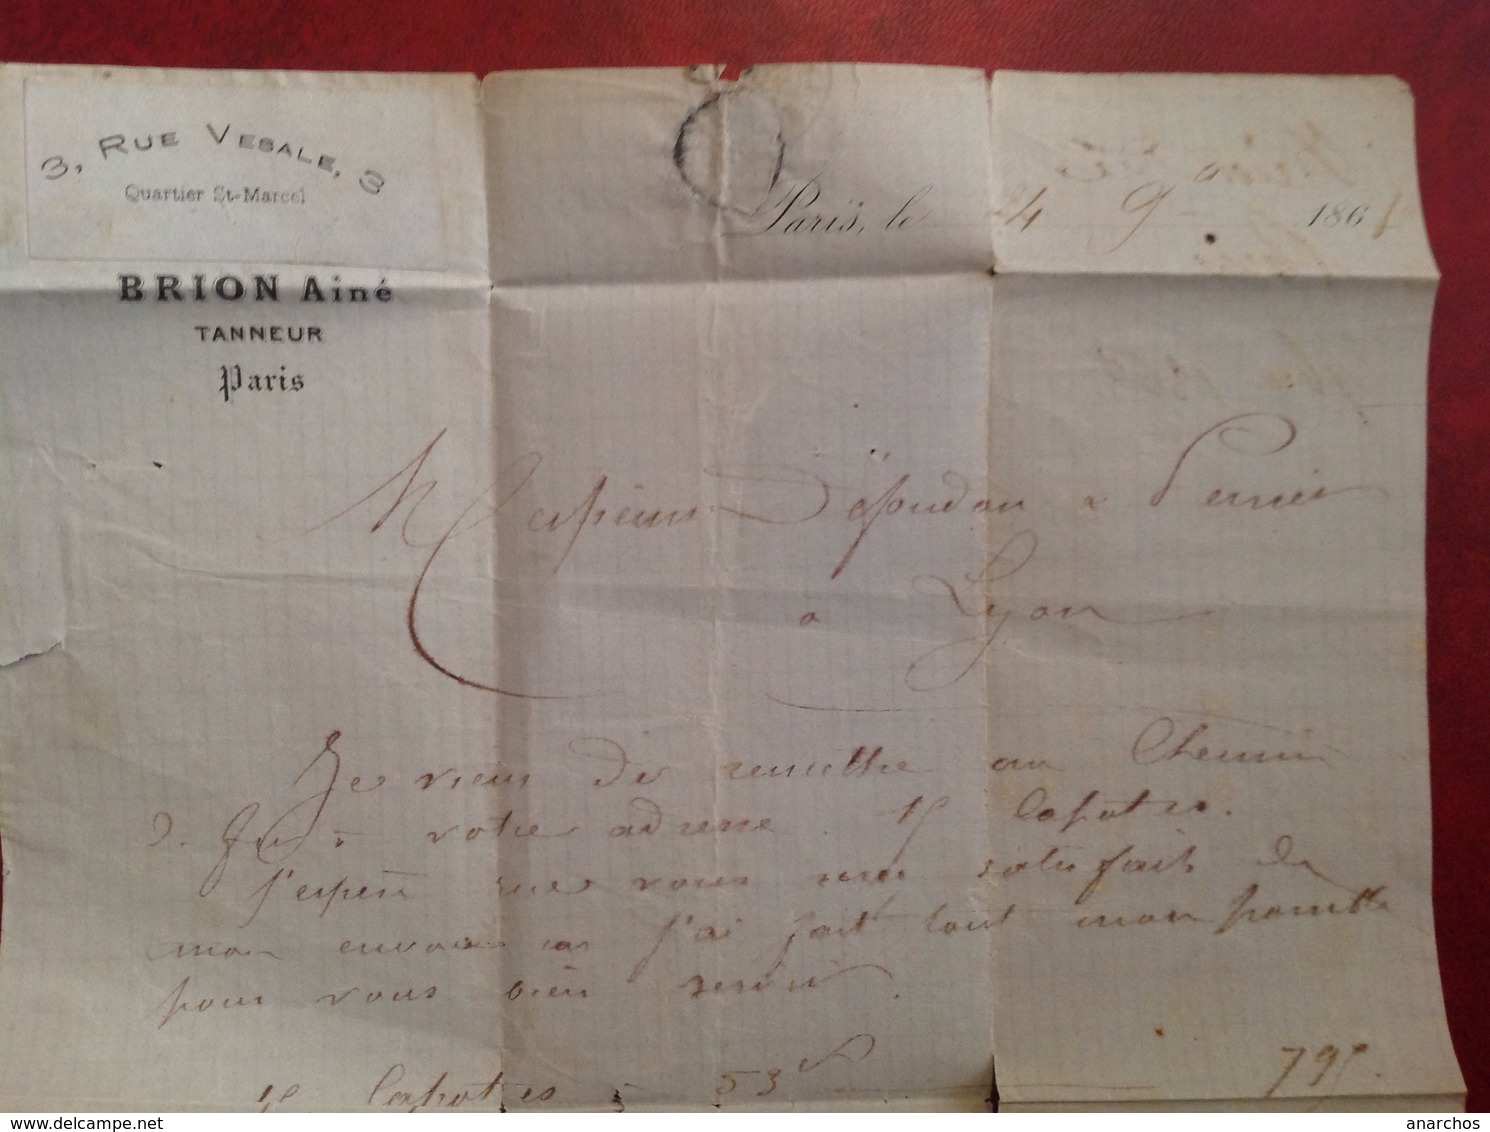 3, RUE VESALE, 3
Quartier St-Marcel
BRION Ainé
TANNEUR
Paris
Paris, le 24 9 186
Messieurs Défoudon & Perrier
a Lyon
Je viens de remettre au Chemin
d. fer a votre adresse. 15 Capotes.
J'espere que vous serez satisfait de
mon envoi car j'ai fait tout mon possible
pour vous bien servir.
15 Capotes a 53f 795.
delcampe.net
anarchos